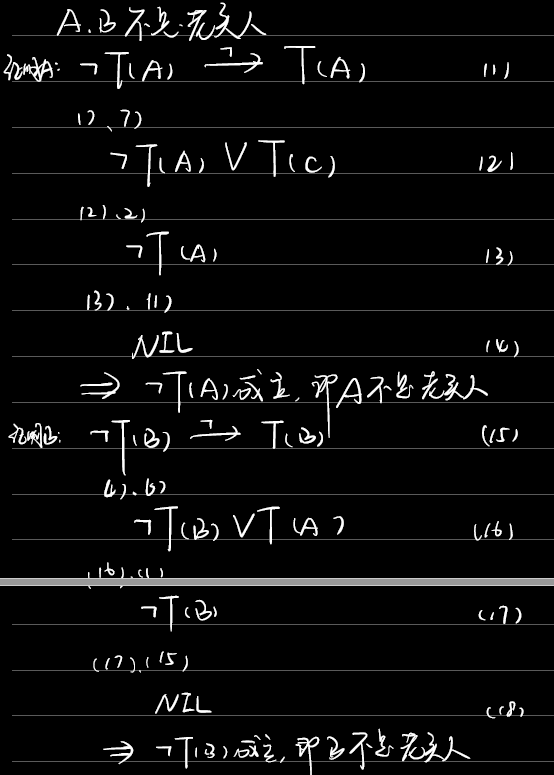 A.B不是老实人
证明A: ¬T(A) ¬→ T(A) (11)
1)、7)
¬T(A) ∨ T(C) (12)
12)、2)
¬T(A) (13)
13)、11)
NIL (14)
⇒ ¬T(A)成立,即A不是老实人
证明B: ¬T(B) ¬→ T(B) (15)
¬T(B) ∨ T(A) (16)
¬T(B) (17)
(17)、(15)
NIL (18)
⇒ ¬T(B)成立,即B不是老实人